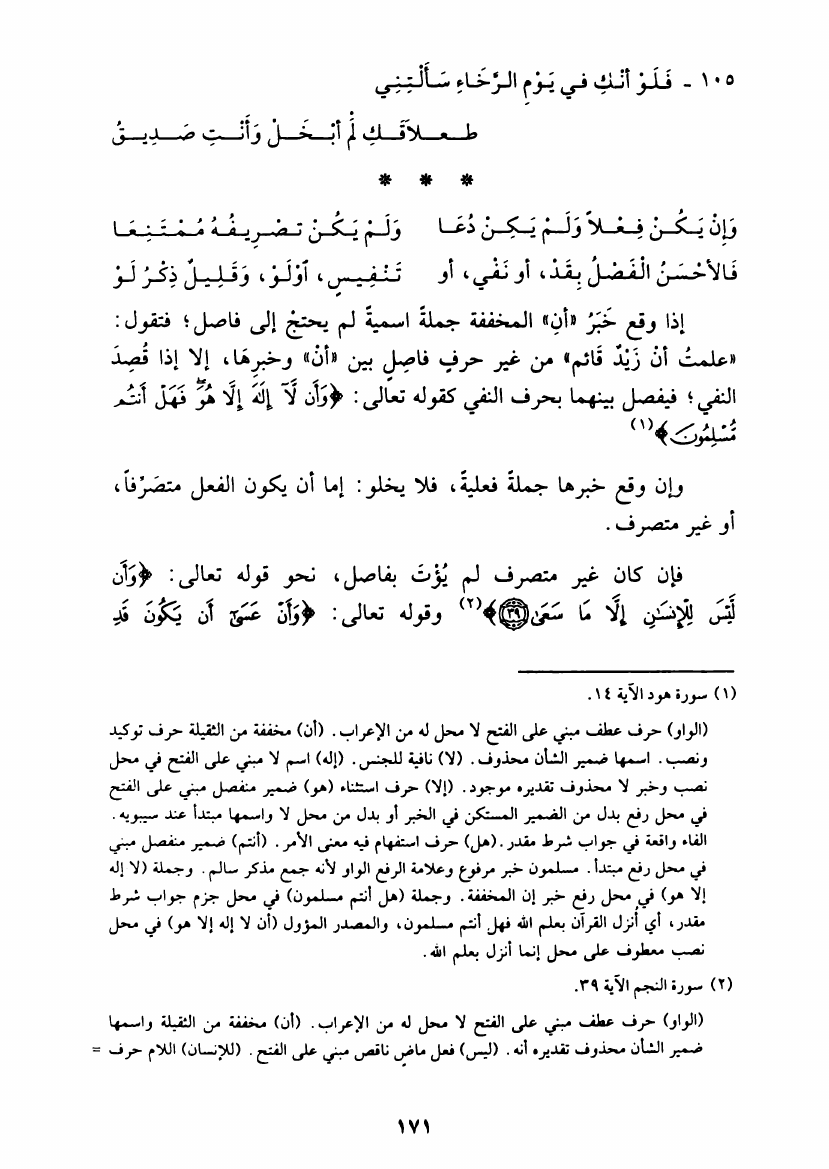 ١٠٥ - فَلَوْ أنْكِ في يَوْمِ الرَّخَاءِ سَأَلْتِنِي
طـعـلاَقَـكِ لَمْ أَبْـخَـلْ وَأَنْـتِ صَـدِيـقُ
* * *
وَإِنْ يَـكُـنْ فِـعْـلاً وَلَـمْ يَـكِـنْ دُعَـا وَلَـمْ يَـكُـنْ تـصْـرِيـفُـهُ مُـمْـتَـنِـعَـا
فَـالأحْسَـنُ الْفَصْـلُ بِـقَدْ، أو نَفْيٍ، أو تَنْفِيسٍ، آوْلَـوْ، وَقَـلِـيـلٌ ذِكْـرُ لَـوْ
إذا وقع خَبَرُ «أن» المخففة جملةً اسميةً لم يحتجْ إلى فاصل؛ فتقول:
«علمتُ أنْ زَيْدٌ قَائم» من غير حرفٍ فاصِلٍ بين «أنْ» وخبرِهَا، إلا إذا قُصِدَ
النفي؛ فيفصل بينهما بحرف النفي كقوله تعالى: ﴿وَأَن لَّآ إِلَهَ إِلَّا هُوَّ فَهَلْ أَنتُم
مُّسْلِمُونَ﴾(١)
وإن وقع خبرها جملةً فعليةً، فلا يخلو: إما أن يكون الفعل متصَرِّفاً،
أو غير متصرف.
فإن كان غير متصرف لم يُؤْتَ بفاصل، نحو قوله تعالى: ﴿وَأَن
لَّيْسَ لِلْإِنسَٰنِ إِلَّا مَا سَعَىٰ ٣٩﴾(٢) وقوله تعالى: ﴿وَأَنْ عَسَىٰٓ أَن يَكُونَ قَدِ
(١) سورة هود الآية ١٤.
(الواو) حرف عطف مبني على الفتح لا محل له من الإعراب. (أن) مخففة من الثقيلة حرف توكيد
ونصب. اسمها ضمير الشأن محذوف. (لا) نافية للجنس. (إله) اسم لا مبني على الفتح في محل
نصب وخبر لا محذوف تقديره موجود. (إلا) حرف استثناء (هو) ضمير منفصل مبني على الفتح
في محل رفع بدل من الضمير المستكن في الخبر أو بدل من محل لا واسمها مبتدأ عند سيبويه.
الفاء واقعة في جواب شرط مقدر. (هل) حرف استفهام فيه معنى الأمر. (أنتم) ضمير منفصل مبني
في محل رفع مبتدأ. مسلمون خبر مرفوع وعلامة الرفع الواو لأنه جمع مذكر سالم. وجملة (لا إله
إلا هو) في محل رفع خبر إن المخففة. وجملة (هل أنتم مسلمون) في محل جزم جواب شرط
مقدر، أي أُنزل القرآن بعلم الله فهل أنتم مسلمون، والمصدر المؤول (أن لا إله إلا هو) في محل
نصب معطوف على محل إنما أنزل بعلم الله.
(٢) سورة النجم الآية ٣٩.
(الواو) حرف عطف مبني على الفتح لا محل له من الإعراب. (أن) مخففة من الثقيلة واسمها
ضمير الشأن محذوف تقديره أنه. (ليس) فعل ماضٍ ناقص مبني على الفتح. (للإنسان) اللام حرف =
١٧١